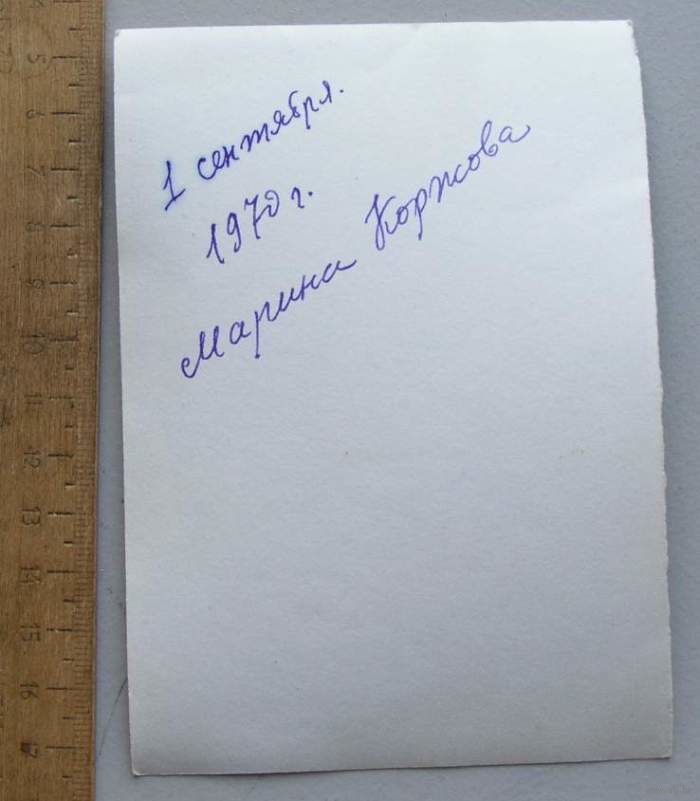 1 сентября.
1970 г.
Марина Коржова
5
6
7
8
9
10
11
12
13
14
15
16
17